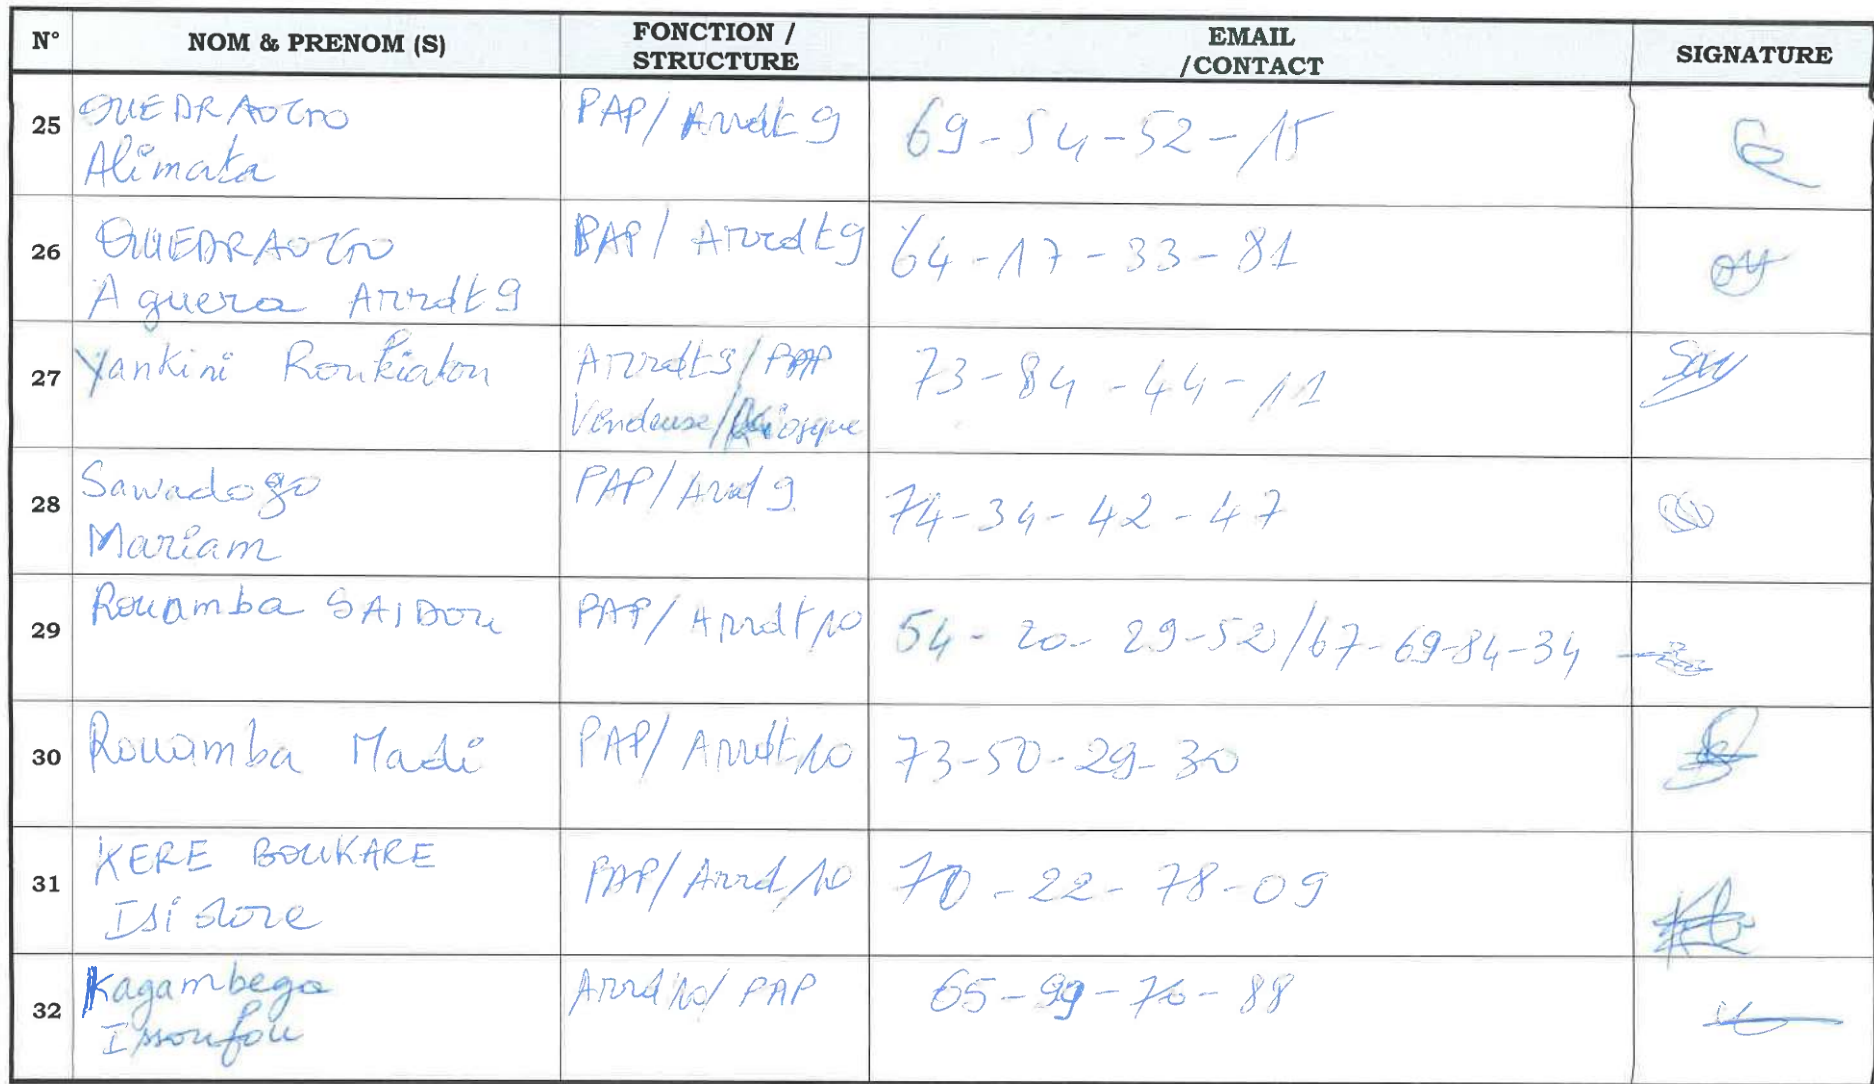 N° NOM & PRENOM (S) FONCTION / STRUCTURE EMAIL /CONTACT SIGNATURE
25 OUEDRAOGO Alimata PAP/Arrdt 9 69-54-52-15
26 OUEDRAOGO Aguera Arrdt 9 PAP/Arrdt 9 64-17-33-81
27 Yankini Roukiatou Arrdt 9/PAP Vendeuse/Kiosque 73-84-44-11
28 Sawadogo Mariam PAP/Arrd 9 74-34-42-47
29 Rouamba SAIDOU PAP/Arrdt 10 54-20-29-52/67-69-84-34
30 Rouamba Madi PAP/Arrdt 10 73-50-29-30
31 KERE BOUKARE Isidore PAP/Arrd 10 70-22-78-09
32 Kagambega Issoufou Arrd 10/PAP 65-99-76-88